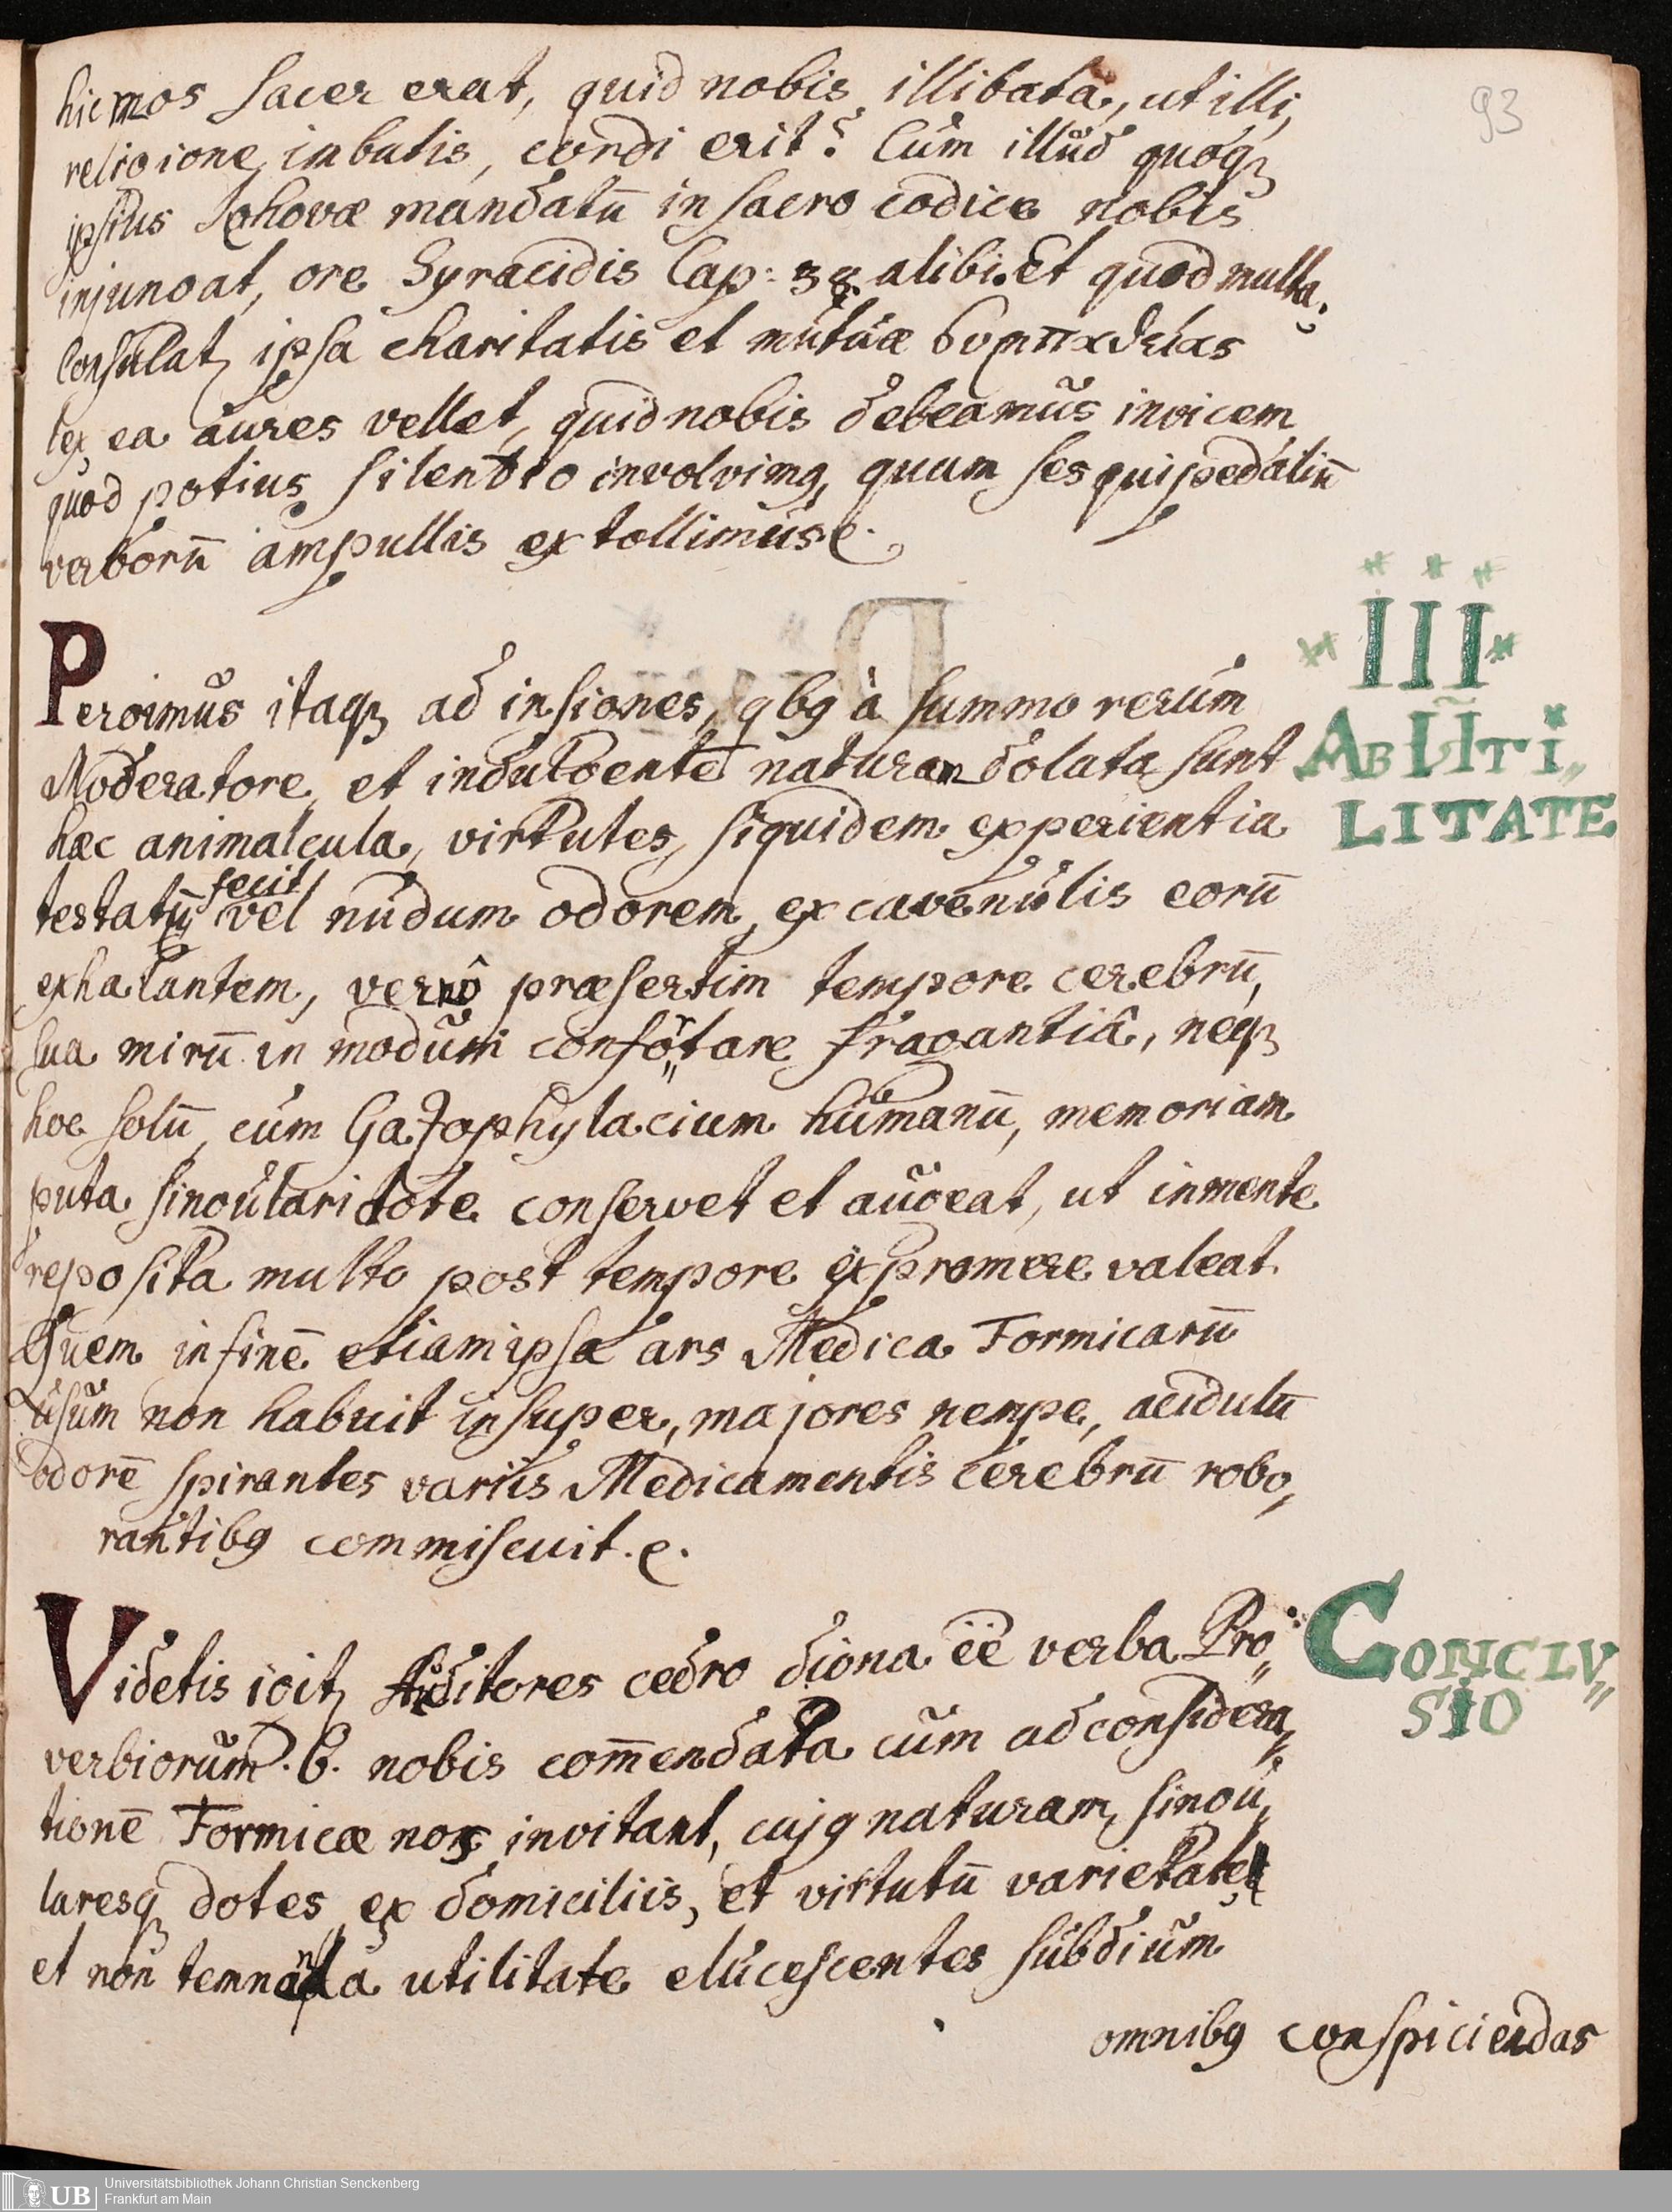 93
hic mos sacer erat, quid nobis illibatâ, ut illi,
religione imbutis, cordi erit? Cum illud quoqꝫ
ipsius Jehovæ mandatū in sacro codice nobis
injungat, ore Syracidis Cap: 38. alibi. Et quod multa
consulat, ipsa charitatis et mutuæ συμπαθείας
lex, ea aures vellet, quid nobis debeamus invicem,
quod potius silentio involvimꝰ, quam sesquipedaliū
verborū ampullis extollimus.
Pergimus itaqꝫ ad insigniores, qbꝰ à summo rerum
Moderatore, et indulgente natura dotata sunt
hæc animalcula, virtutes, siquidem experientia
testatū fecit vel nudum odorem, ex cavernulis eorū
exhalantem, vernô præsertim tempore cerebrū,
sua mirū in modum confortare fragantiâ, neqꝫ
hoc solū, cum Gazophylacium humanū, memoriam
puta singulari dote conservet et augeat, ut in mente
reposita multo post tempore expromere valeat.
Quem in finē etiam ipsa ars Medica Formicarū
usum non habuit insuper, majores nempe, acidulū
odorē spirantes variis Medicamentis cerebrū robo,,
rantibꝰ commiscuit.
Videtis igitꝫ Auditores cedro digna ēē verba Pro,,
verbiorum. 6. nobis com̄endata cum ad considera,,
tionē Formicæ nos invitant, cujꝰ naturam, singu,,
laresqꝫ dotes ex domiciliis, et virtutū varietate
et non temnanda utilitate elucescentes sub dium
omnibꝰ conspiciendas
III
AB UTI,,
LITATE
CONCLV,,
SIO
UB
Universitätsbibliothek Johann Christian Senckenberg
Frankfurt am Main